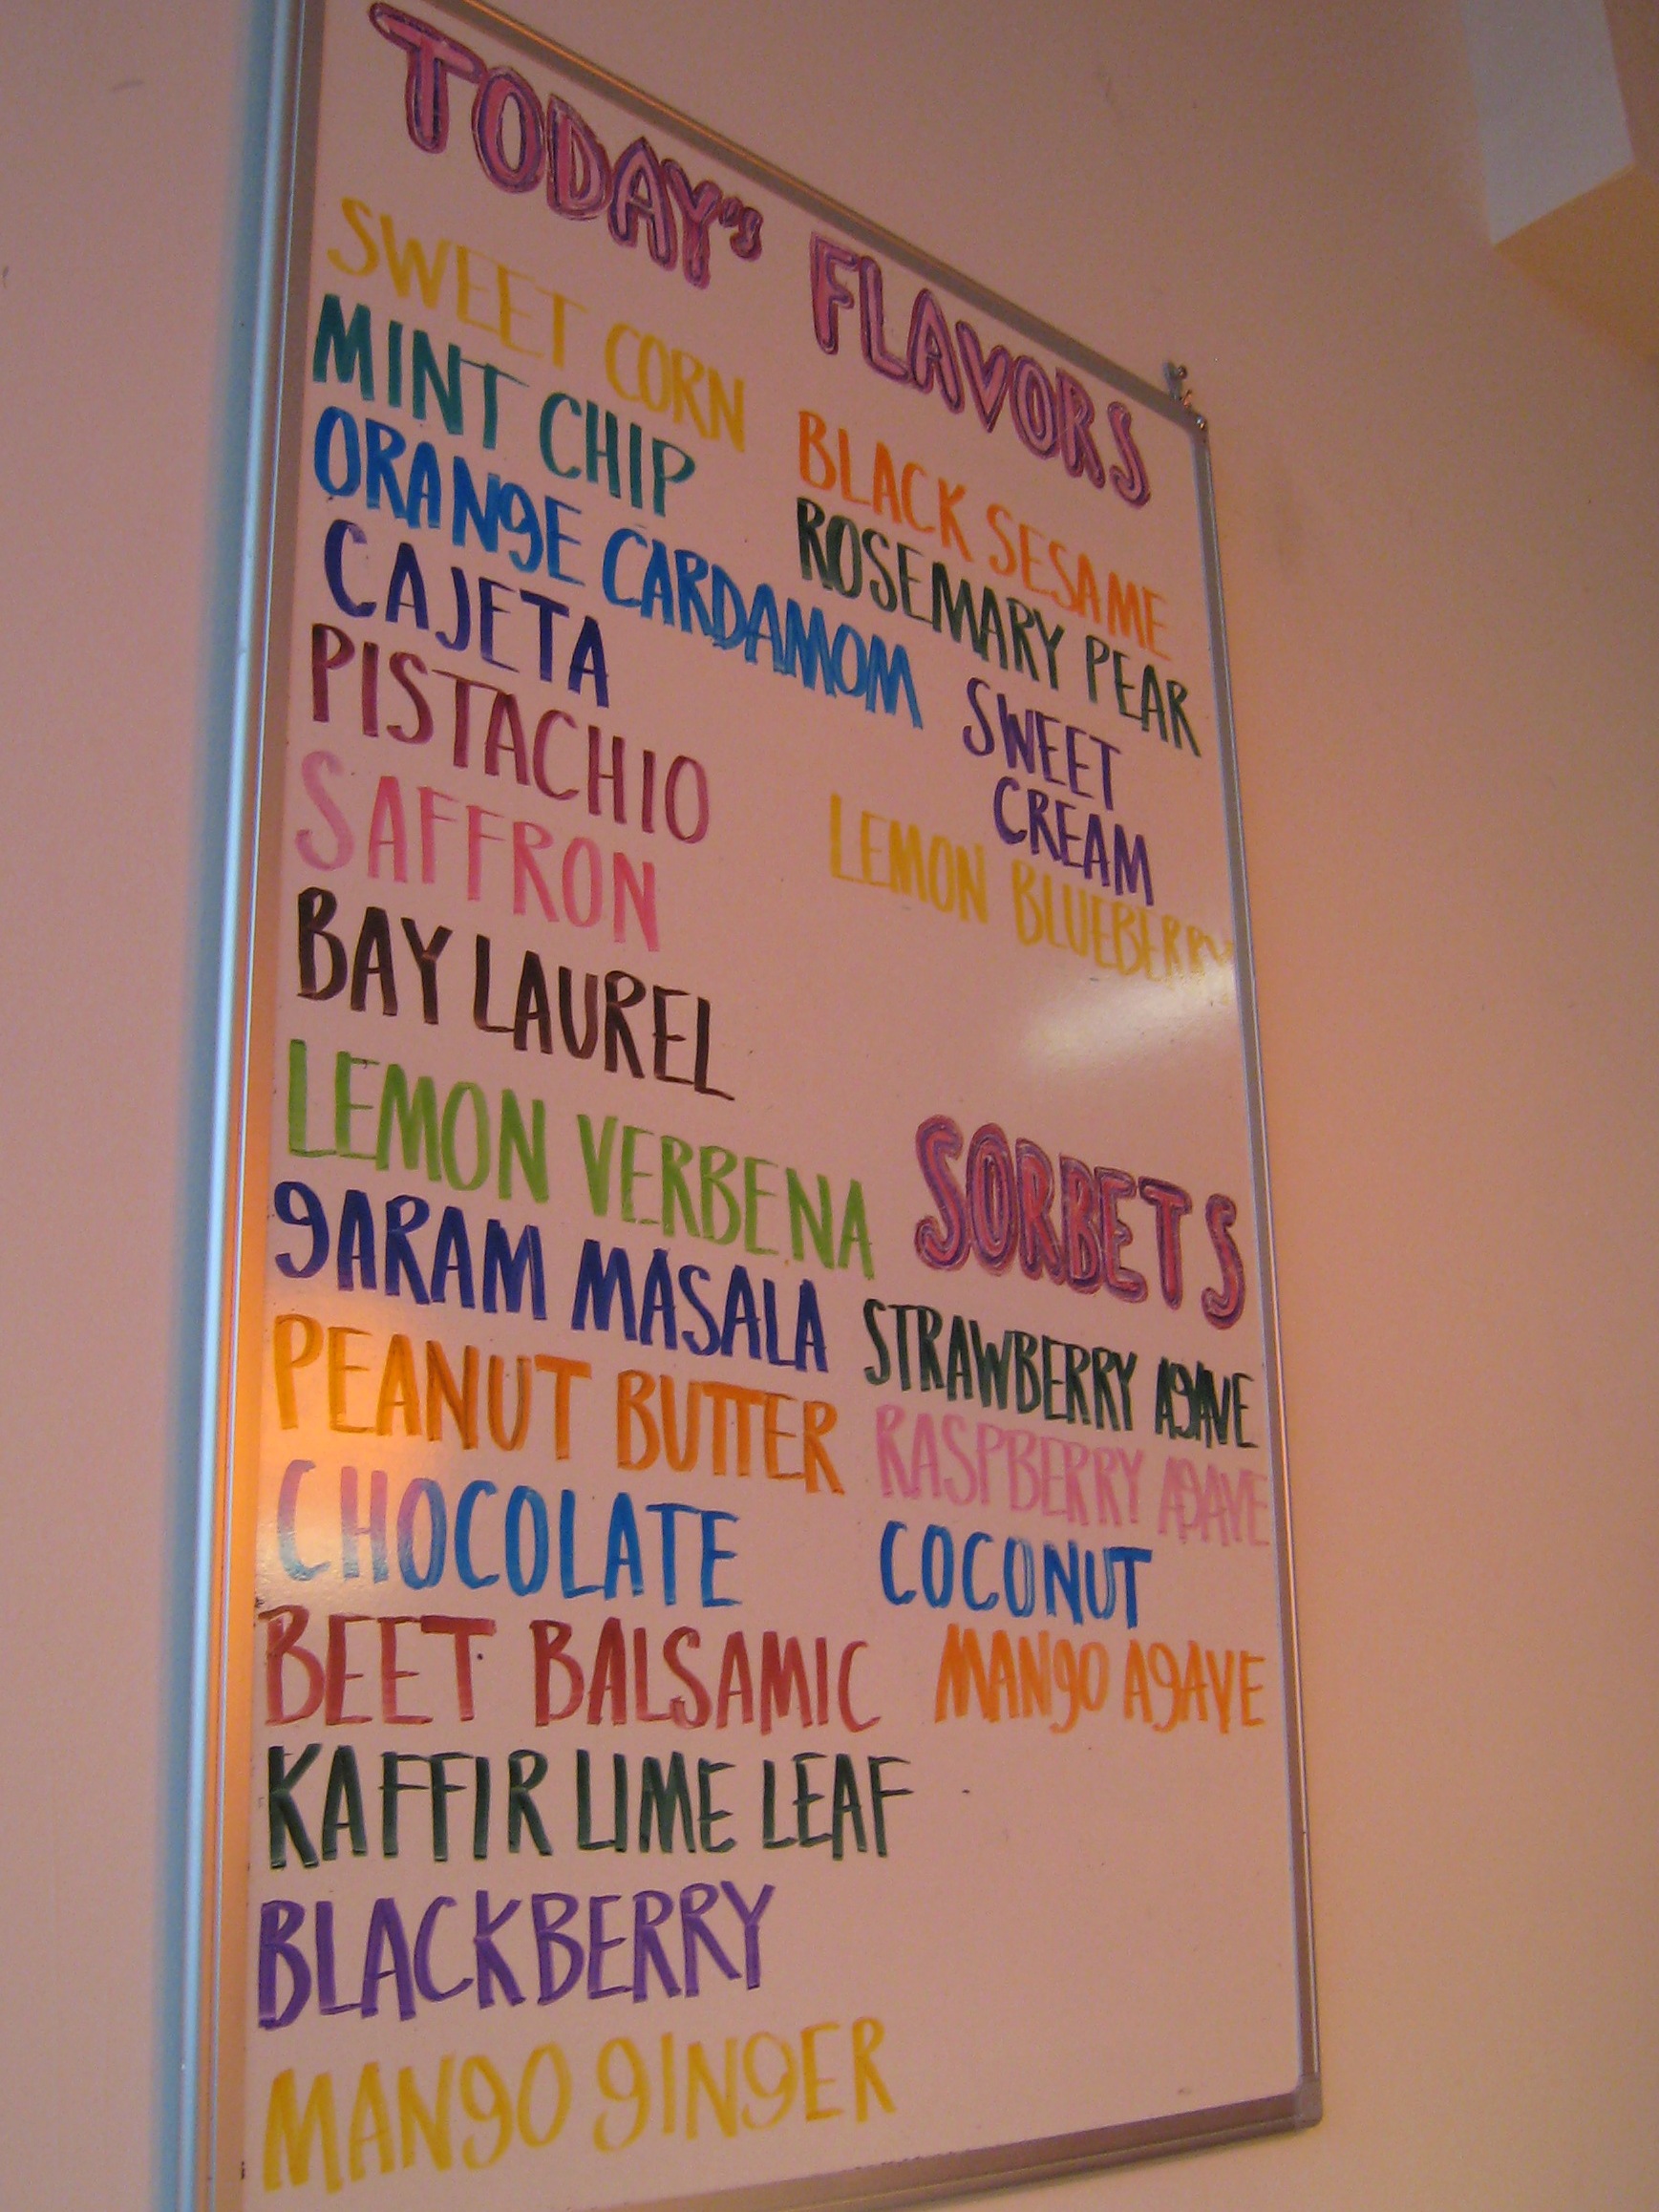 TODAY's FLAVORS
SWEET CORN
MINT CHIP
ORANgE CARDAMOM
CAJETA
PISTACHIO
SAFFRON
BAY LAUREL
LEMON VERBENA
gARAM MASALA
PEANUT BUTTER
CHOCOLATE
BEET BALSAMIC
KAFFIR LIME LEAF
BLACKBERRY
MANgO gINgER
BLACK SESAME
ROSEMARY PEAR
SWEET
CREAM
LEMON BLUEBERRY
SORBETS
STRAWBERRY AgAVE
RASPBERRY AgAVE
COCONUT
MANgO AgAVE